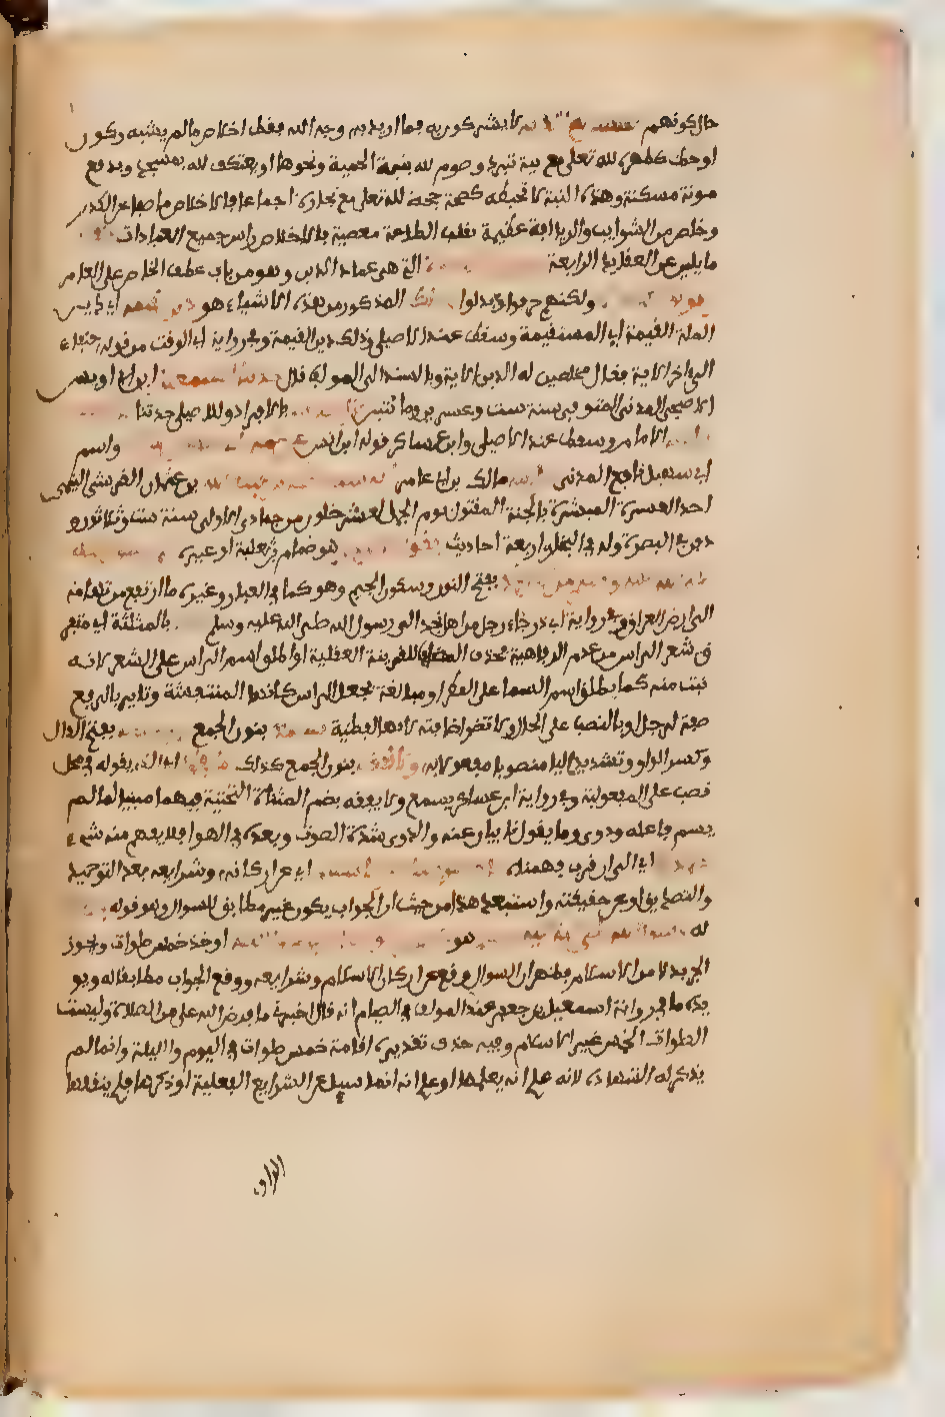 حال كونهم لا يشركون به فما اريد به وجه الله فقط اخلاص ما لم يشبه ركون
او حظ كطهره لله تعلى مع نية تبرد وصوم لله بنية الحمية ونحوها او يعتكف لله بمسجد ويدفع
مونة مسكنة وهذه النية لا تحبطه كصحة حجه لله تعلى مع تجارة اجماعا فالاخلاص ما صفا عن الكدر
وخلص من الشوايب والريا افة عظيمة تقلب الطاعة معصية فالاخلاص راس جميع العبادات
ما يلين عن العقايد الرابعة التي هي عماد الدين وهو من باب عطف الخاص على العام
ولكنهم حرفوا وبدلوا المذكور من هذه الاشياء هو دين القيمة اي دين
الملة القيمة اي المستقيمة وسقط عند الاصيلي وذلك دين القيمة وفي رواية ابي الوقت من قوله حنفاء
الى اخر الاية فقال مخلصين له الدين الاية وبالسند الى المولف قال حدثنا اسمعيل ابن ابي اويس
الاصبحي المدني المتوفى سنة ست وعشرين وماتين بالافراد وللاصيلي حدثنا
الامام وسقط عند الاصيلي وابن عساكر قوله ابن انس واسم
ابي سهيل نافع المدني مالك بن ابي عامر بن عثمان القرشي التيمي
احد العشرة المبشرة بالجنة المقتول يوم الجمل لعشر خلون من جمادى الاولى سنة ست وثلاثين و
دفن في البصرة وله في البخاري اربعة احاديث يقول هو ضمام بن ثعلبة او غيره
بفتح النون وسكون الجيم وهو كما في العباب وغيره ما ارتفع من تهامة
الى ارض العراق وفي رواية ابي ذر جاء رجل من اهل نجد الى رسول الله صلى الله عليه وسلم بالمثلثة اي متفر
ق شعر الراس من عدم الرفاهية بحذف المضاف للقرينة العقلية او اطلق اسم الراس على الشعر لانه
نبت منه كما يطلق اسم السما على المطر او مبالغة بجعل الراس كانها المنتفشة وثاير بالرفع
صفة لرجل وبالنصب على الحال ولا تضر اضافته لانها لفظية بنون الجمع بفتح الدال
وكسر الواو وتشديد اليا منصوبا مفعولا به ولا نفقه بنون الجمع كذلك اي الذي يقوله في محل
نصب على المفعولية وفي رواية ابن عساكر يسمع ولا يفقه بضم المثناة التحتية فيهما مبنيا لما لم
يسم فاعله ودوي وما يقول نايبان عنه والدوي شدة الصوت وبعده في الهوا فلا يفهم منه شيء
اي الى ان قرب فهمناه اي عن اركانه وشرايعه بعد التوحيد
والتصديق او عن حقيقته واستبعد هذا من حيث ان الجواب يكون غير مطابق للسوال وهو قوله
له هو او خذ خمس صلوات ويجوز
الجر بدلا من الاسلام فظهر ان السوال وقع عن اركان الاسلام وشرايعه ووقع الجواب مطابقا له ويو
يده ما في رواية اسمعيل بن جعفر عند المولف في الصيام انه قال اخبرني ما فرض الله علي من الصلاة وليست
الصلوات الخمس غير الاسلام وفيه حذف تقديره اقامة خمس صلوات في اليوم والليلة وانما لم
يذكر له الشهادة لانه علم انه يعلمها او علم انه انما يسيل عن الشرايع الفعلية او ذكرها فلم ينقلها
الراوي